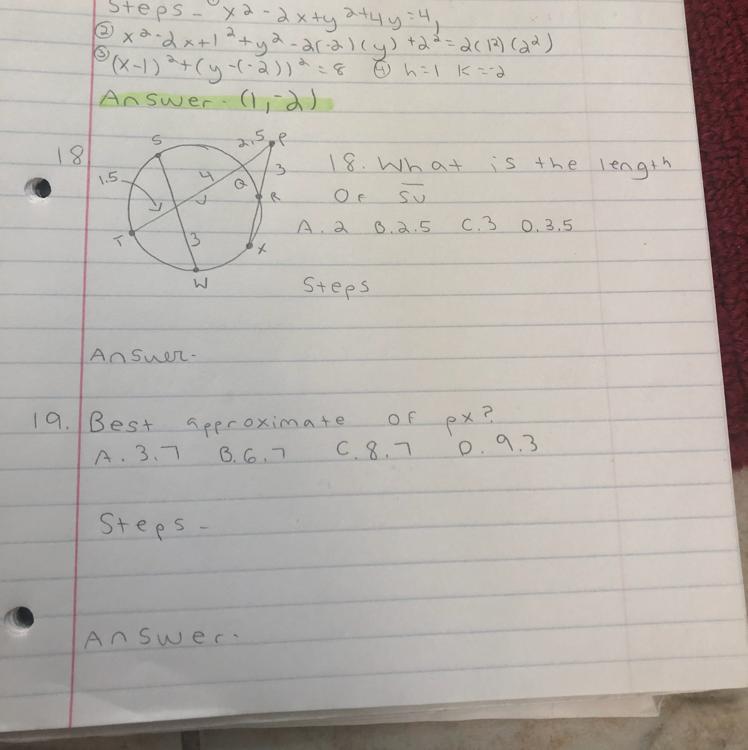 Steps - ① x2 - 2x+y2+4y=4,
② x2-2x+12+y2-2(-2)(y)+22=2(12)(22)
③ (x-1)2+(y-(-2))2=8 ④ h=1 K=-2
Answer- (1,-2)
S 2.5 P
18 18. What is the length
1.5 4 Q 3
U R OF SU
A. 2 B. 2.5 C. 3 D. 3.5
T 3 X
W Steps
Answer-
19. Best approximate OF px?
A. 3.7 B. 6.7 C. 8.7 D. 9.3
Steps -
Answer-